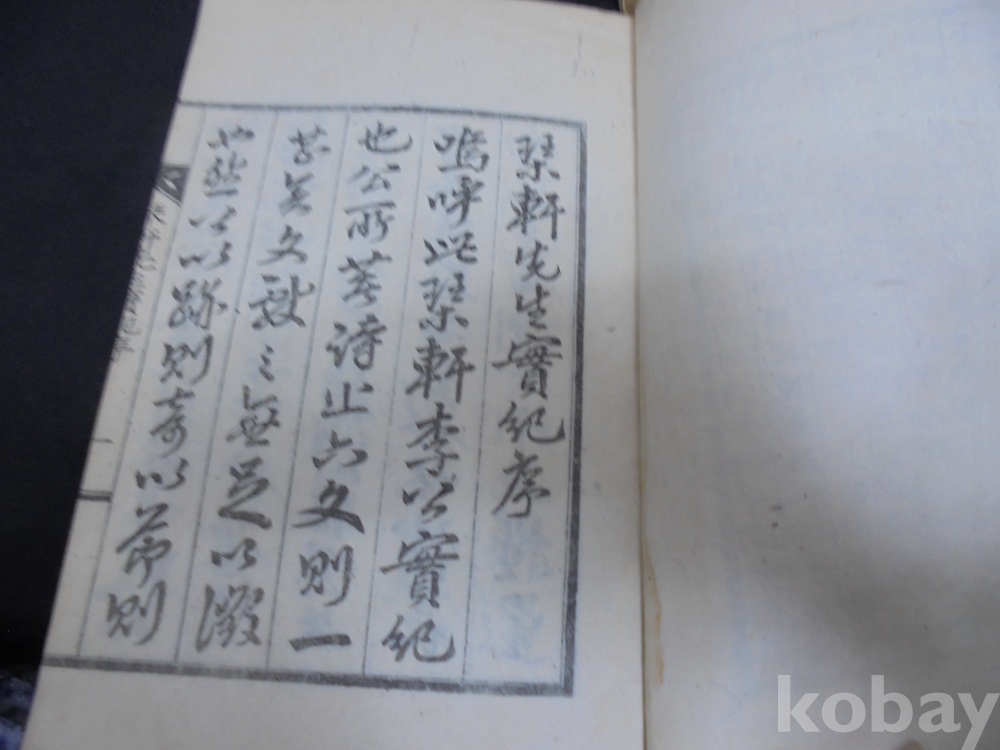 琹軒先生實紀序
嗚呼此琹軒李公實紀
也公所著詩止六文則一
甚矣文獻之無足以徵
也然公以跡則奇以節則
kobay